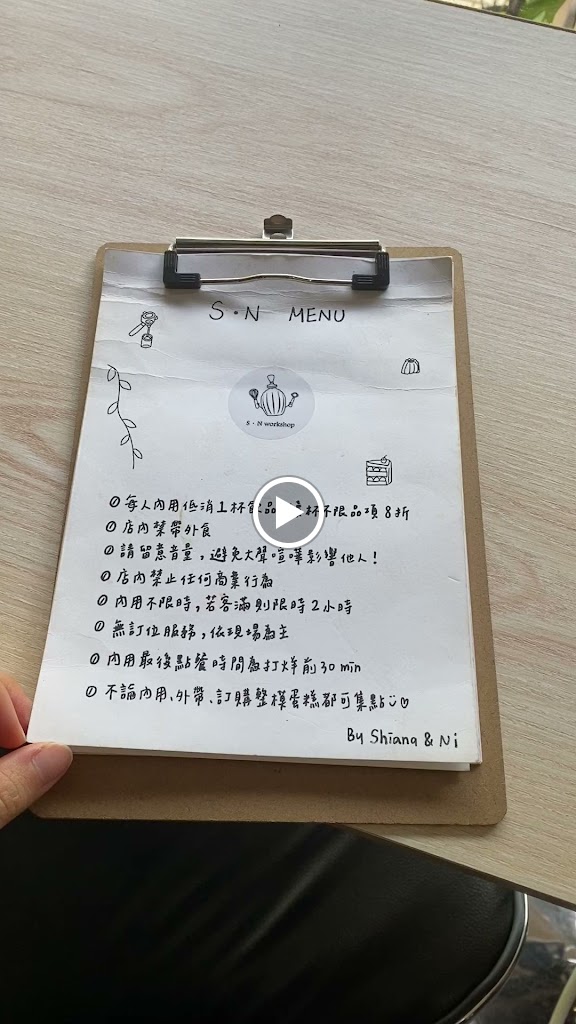 S·N MENU
S·N workshop
每人內用低消1杯飲品 杯不限品項8折
店內禁帶外食
請留意音量，避免大聲喧嘩影響他人！
店內禁止任何商業行為
內用不限時，若客滿則限時2小時
無訂位服務，依現場為主
內用最後點餐時間為打烊前30 min
不論內用、外帶、訂購整模蛋糕都可集點
By Shiana & Ni